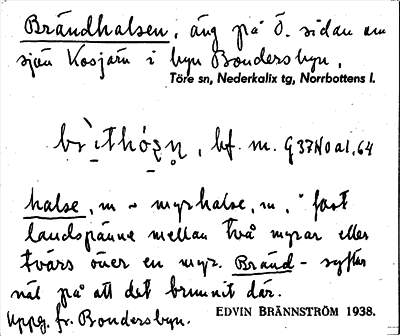 Brändhalsen, äng på Ö. sidan om
sjön Kosjärn i byn Bondersbyn,
Töre sn, Nederkalix tg, Norrbottens l.
bf. m. G 37 N o a l. 64
halse, m ~ myrhalse, m, "fast
landspänne mellan två myrar eller
tvärs över en myr. Bränd- syftar
näl på att det brunnit där.
Uppg. fr. Bondersbyn. EDVIN BRÄNNSTRÖM 1938.